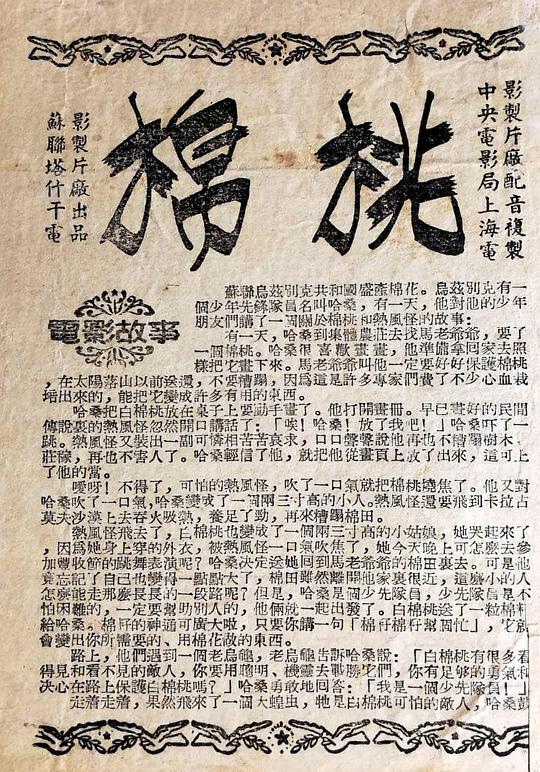 蘇聯塔什干電
影製片廠出品
棉桃
中央電影局上海電
影製片廠配音複製
電影故事
蘇聯烏茲別克共和國盛產棉花。烏茲別克有一
個少年先鋒隊員名叫哈桑,有一天,他對他的少年
朋友們講了一個關於棉桃和熱風怪的故事:
有一天,哈桑到集體農莊去找馬老爺爺,要了
一個棉桃。哈桑很喜歡畫畫,他準備拿回家去照
樣把它畫下來。馬老爺爺叫他一定要好好保護棉桃
,在太陽落山以前送還,不要糟蹋,因爲這是許多專家們費了不少心血栽
培出來的,能把它變成許多有用的東西。
哈桑把白棉桃放在桌子上要動手畫了。他打開畫冊。早已畫好的民間
傳說裏的熱風怪忽然開口講話了:「唉!哈桑!放了我吧!」哈桑吓了一
跳。熱風怪又裝出一副可憐相苦苦哀求,口口聲聲說他再也不糟蹋樹木、
莊稼,再也不害人了。哈桑輕信了他,就把他從畫頁上放了出來,這可上
了他的當。
噯呀!不得了,可怕的熱風怪,吹了一口氣就把棉桃燒焦了。他又對
哈桑吹了一口氣,哈桑變成了一個兩三寸高的小人。熱風怪還要飛到卡拉古
莫夫沙漠上去吞火吸熱,養足了勁,再來糟蹋棉田。
熱風怪飛去了,白棉桃也變成了一個兩三寸高的小姑娘,她哭起來了
,因爲她身上穿的外衣,被熱風怪一口氣吹焦了,她今天晚上可怎麼去參
加豐收節的跳舞表演呢?哈桑决定送她回到馬老爺爺的棉田裏去。可是他
竟忘記了自己也變得一點點大了,棉田雖然離開他家裏很近,這麼小的人
怎麼能走那麼長長的一段路呢?但是,哈桑是個少先隊員,少先隊員是不
怕困難的,一定要幫助別人的,他倆就一起出發了。白棉桃送了一粒棉籽
給哈桑。棉籽的神通可廣大啦,只要你講一句「棉仔棉仔幫個忙」,它就
會變出你所需要的、用棉花做的東西。
路上,他們遇到一個老烏龜,老烏龜告訴哈桑說:「白棉桃有很多看
得見和看不見的敵人,你要用聰明、機靈去戰勝它們,你有足夠的勇氣和
决心在路上保護白棉桃嗎?」哈桑勇敢地回答:「我是一個少先隊員!」
走着走着,果然飛來了一個大蝗虫,牠是白棉桃可怕的敵人,哈桑